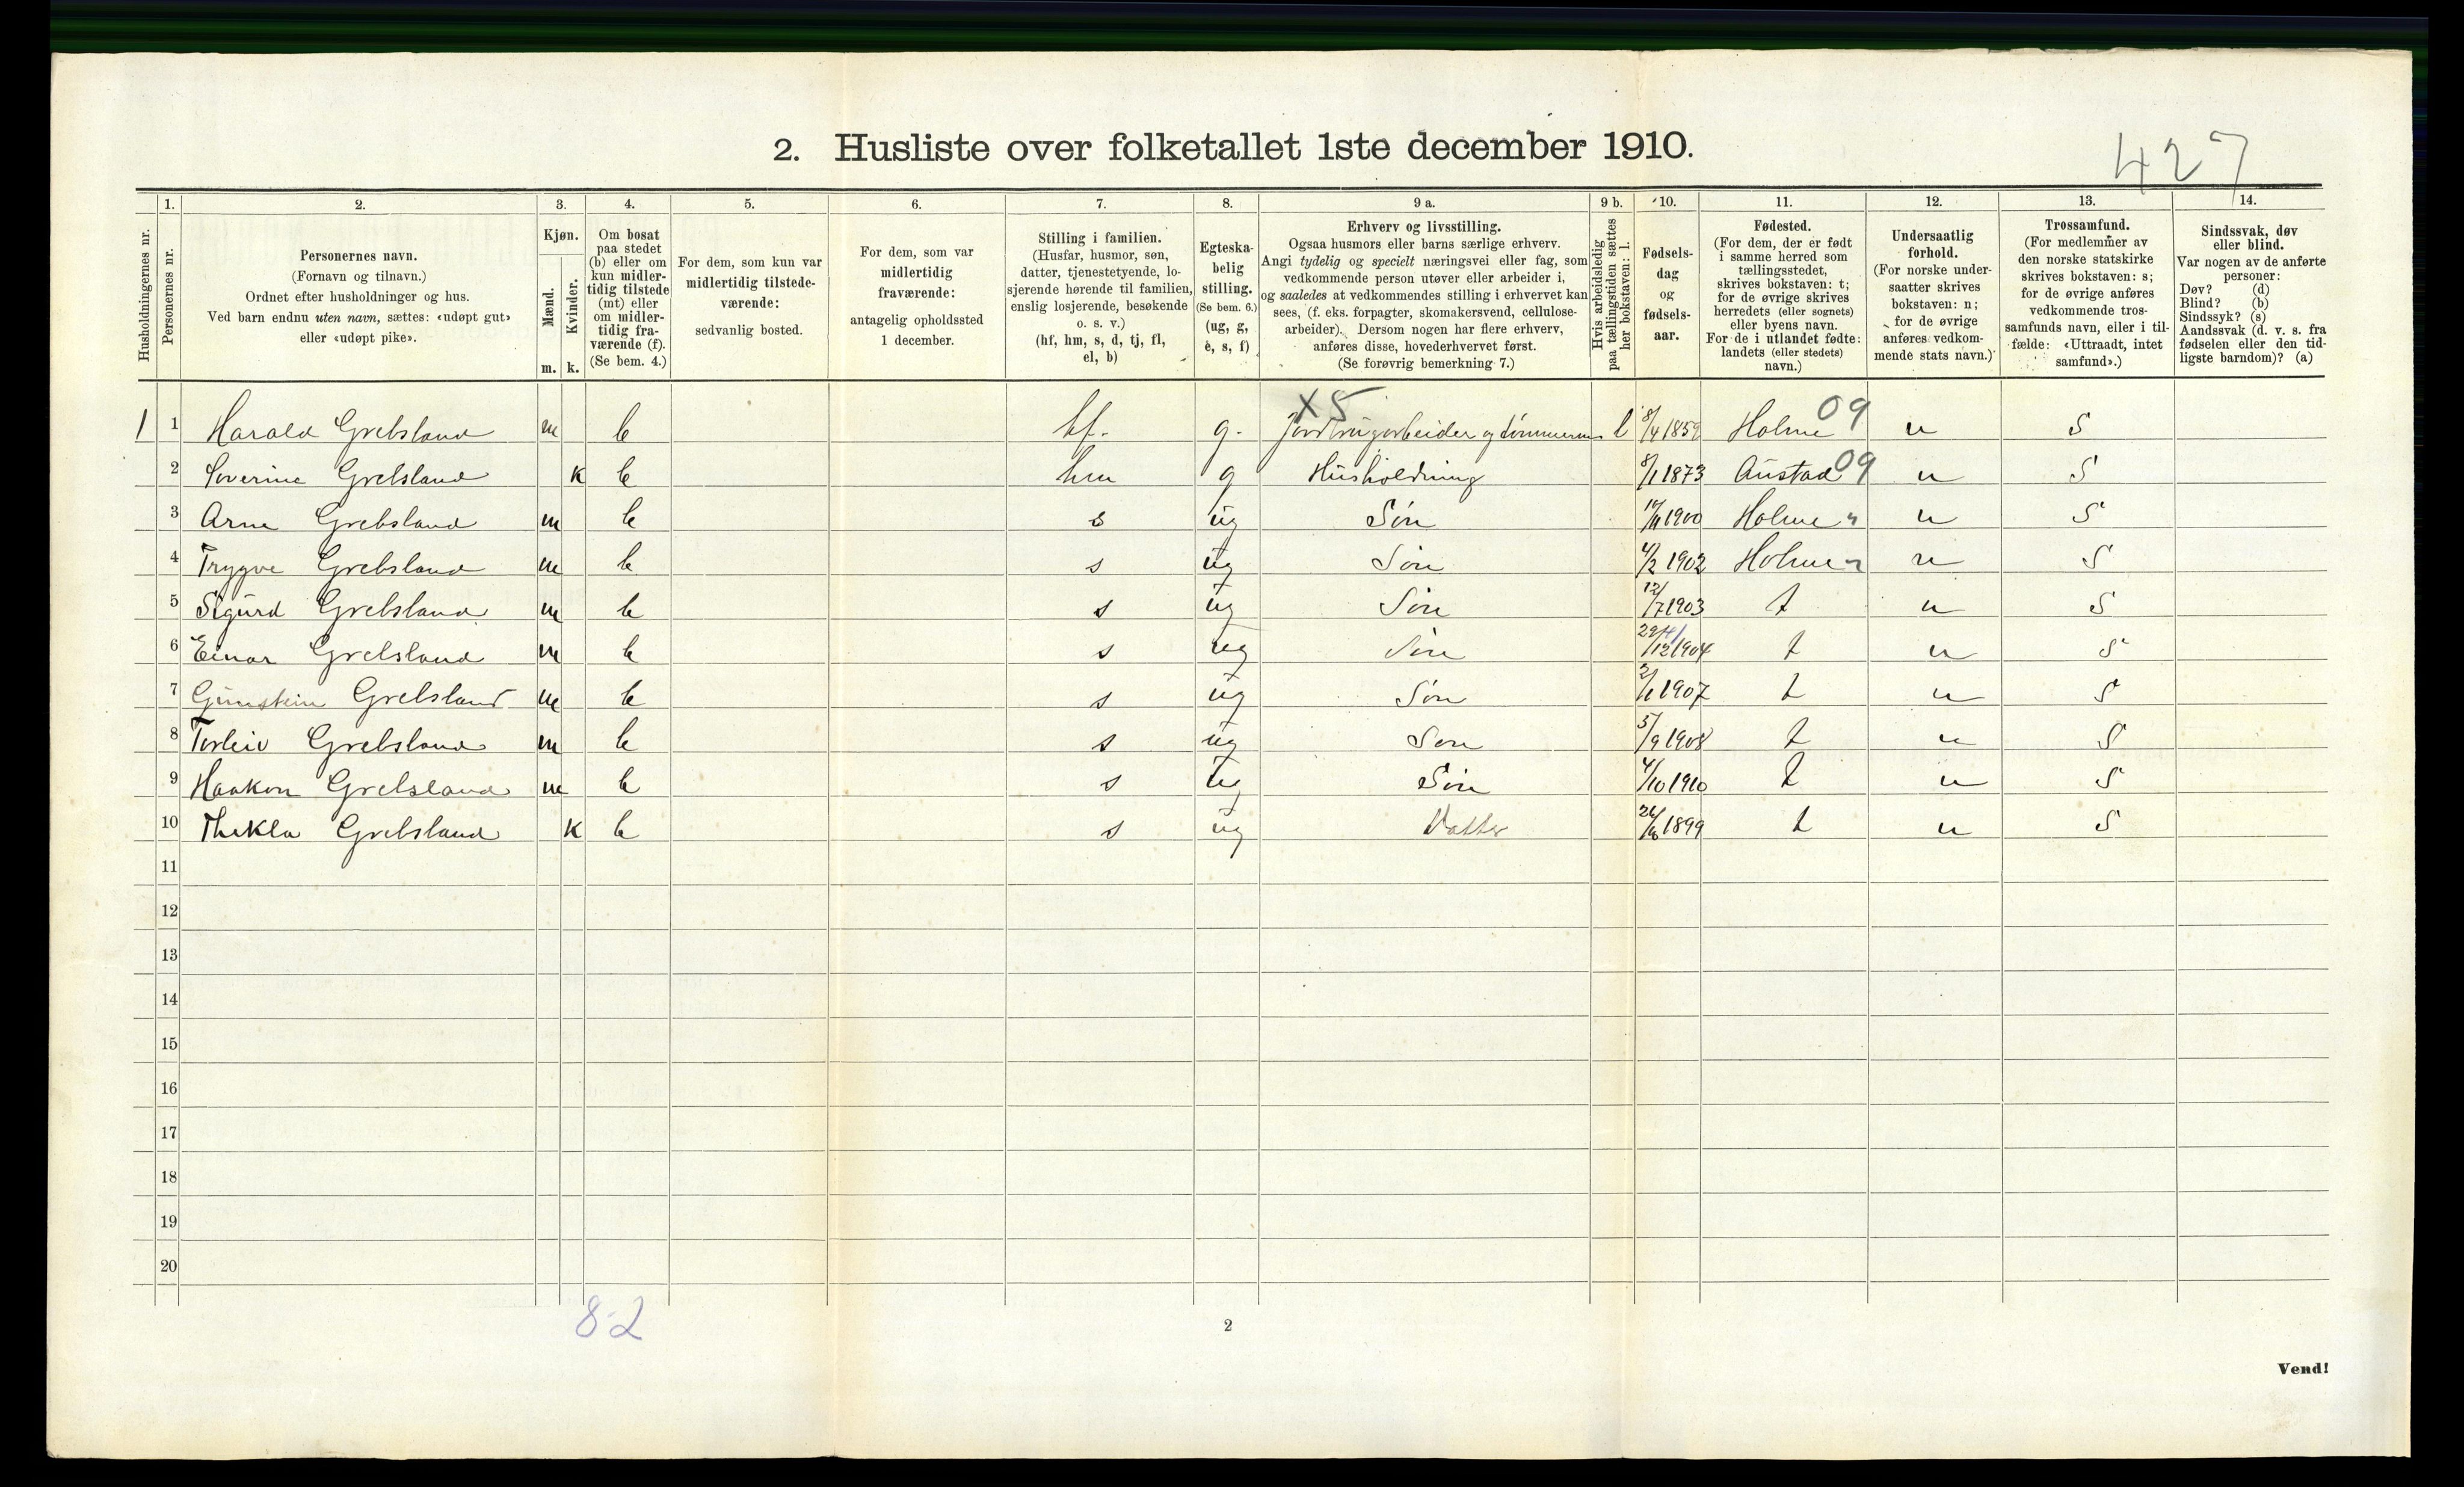 427
2. Husliste over folketallet 1ste december 1910.
Husholdningernes nr.
1.
Personernes nr.
2.
Personernes navn.
(Fornavn og tilnavn.)
Ordnet efter husholdninger og hus.
Ved barn endnu uten navn, sættes: «udøpt gut»
eller «udøpt pike».
3.
Kjøn.
Mænd.
Kvinder.
m. k.
4.
Om bosat
paa stedet
(b) eller om
kun midler-
tidig tilstede
(mt) eller
om midler-
tidig fra-
værende (f).
(Se bem. 4.)
5.
For dem, som kun var
midlertidig tilstede-
værende:
sedvanlig bosted.
6.
For dem, som var
midlertidig
fraværende:
antagelig opholdssted
1 december.
7.
Stilling i familien.
(Husfar, husmor, søn,
datter, tjenestetyende, lo-
sjerende hørende til familien,
enslig losjerende, besøkende
o. s. v.)
(hf, hm, s, d, tj, fl,
el, b)
8.
Egteska-
belig
stilling.
(Se bem. 6.)
(ug, g,
e, s, f)
9 a.
Erhverv og livsstilling.
Ogsaa husmors eller barns særlige erhverv.
Angi tydelig og specielt næringsvei eller fag, som
vedkommende person utøver eller arbeider i,
og saaledes at vedkommendes stilling i erhvervet kan
sees, (f. eks. forpagter, skomakersvend, cellulose-
arbeider). Dersom nogen har flere erhverv,
anføres disse, hovederhvervet først.
(Se forøvrig bemerkning 7.)
9 b.
Hvis arbeidsledig
paa tællingstiden sættes
her bokstaven: l.
10.
Fødsels-
dag
og
fødsels-
aar.
11.
Fødested.
(For dem, der er født
i samme herred som
tællingsstedet,
skrives bokstaven: t;
for de øvrige skrives
herredets (eller sognets)
eller byens navn.
For de i utlandet fødte:
landets (eller stedets)
navn.)
12.
Undersaatlig
forhold.
(For norske under-
saatter skrives
bokstaven: n;
for de øvrige
anføres vedkom-
mende stats navn.)
13.
Trossamfund.
(For medlemmer av
den norske statskirke
skrives bokstaven: s;
for de øvrige anføres
vedkommende tros-
samfunds navn, eller i til-
fælde: «Uttraadt, intet
samfund».)
14.
Sindssvak, døv
eller blind.
Var nogen av de anførte
personer:
Døv? (d)
Blind? (b)
Sindssyk? (s)
Aandssvak (d. v. s. fra
fødselen eller den tid-
ligste barndom)? (a)
X5
1 1 Harald Grebsland m b hf. g. Jordbrugarbeider og tømmerm l 8/4 1859 Holme 09 n S
2 Severine Grebsland k b hm g Husholdning 8/1 1873 Austad 09 n S
3 Arne Grebsland m b s ug Søn 1900 Holme " n S
4 Trygve Grebsland m b s ug Søn 4/2 1902 Holme " n S
5 Sigurd Grebsland m b s ug Søn 12/7 1903 t n S
6 Einar Grebsland m b s ug Søn 29/12 1904 t n S
7 Gunstein Grebsland m b s ug Søn 2/1 1907 t n S
8 Torleiv Grebsland m b s ug Søn 5/9 1908 t n S
9 Haakon Grebsland m b s ug Søn 4/10 1910 t n S
10 Thekla Grebsland k b s ug Datter 1899 t n S
11
12
13
14
15
16
17
18
19
20
8-2
2
Vend!